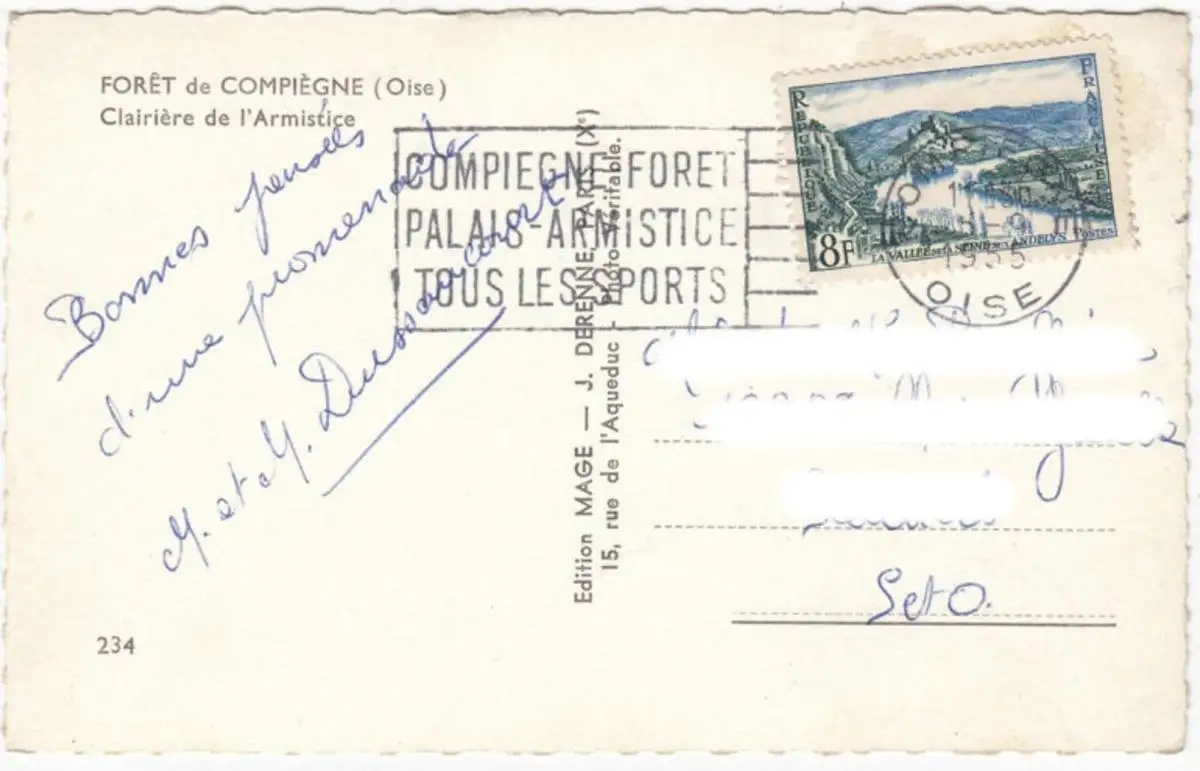 FORÊT de COMPIÈGNE (Oise)
Clairière de l'Armistice
Bonnes pensées
d'une promenade
M. et M. Dussaucourt
234
COMPIEGNE FORET
PALAIS-ARMISTICE
TOUS LES SPORTS
Edition MAGE — J. DERENNE PARIS (Xe)
15, rue de l'Aqueduc - Photo Véritable.
RÉPUBLIQUE FRANÇAISE
8F
LA VALLÉE DE LA SEINE AUX ANDELYS POSTES
1955
OISE
Set O.